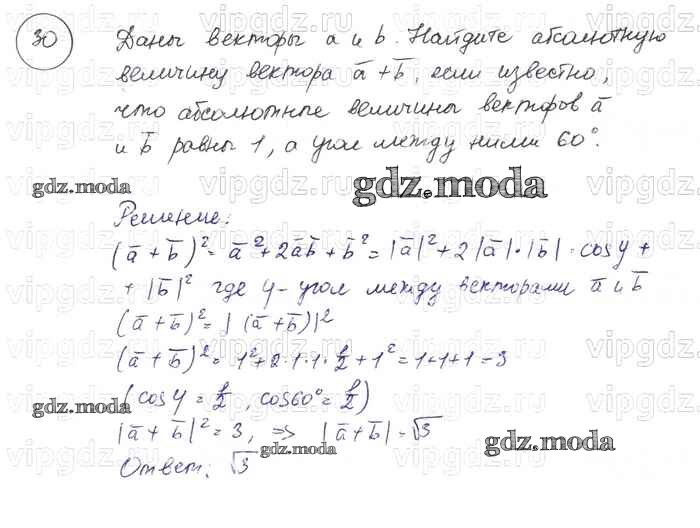 30 Даны векторы a и b. Найдите абсолютную
величину вектора a̅ + b̅, если известно,
что абсолютные величины векторов a̅
и b̅ равны 1, а угол между ними 60°.
gdz.moda
gdz.moda
Решение:
(a̅ + b̅)² = a̅² + 2a̅b̅ + b̅² = |a̅|² + 2|a̅|·|b̅|·cosφ +
+ |b̅|² где φ - угол между векторами a̅ и b̅
(a̅ + b̅)² = |(a̅ + b̅)|²
(a̅ + b̅)² = 1² + 2·1·1·1/2 + 1² = 1+1+1 = 3
(cosφ = 1/2, cos60° = 1/2)
gdz.moda
gdz.moda
|a̅ + b̅|² = 3, => |a̅ + b̅| = √3
gdz.moda
gdz.moda
Ответ: √3
vipgdz.ru